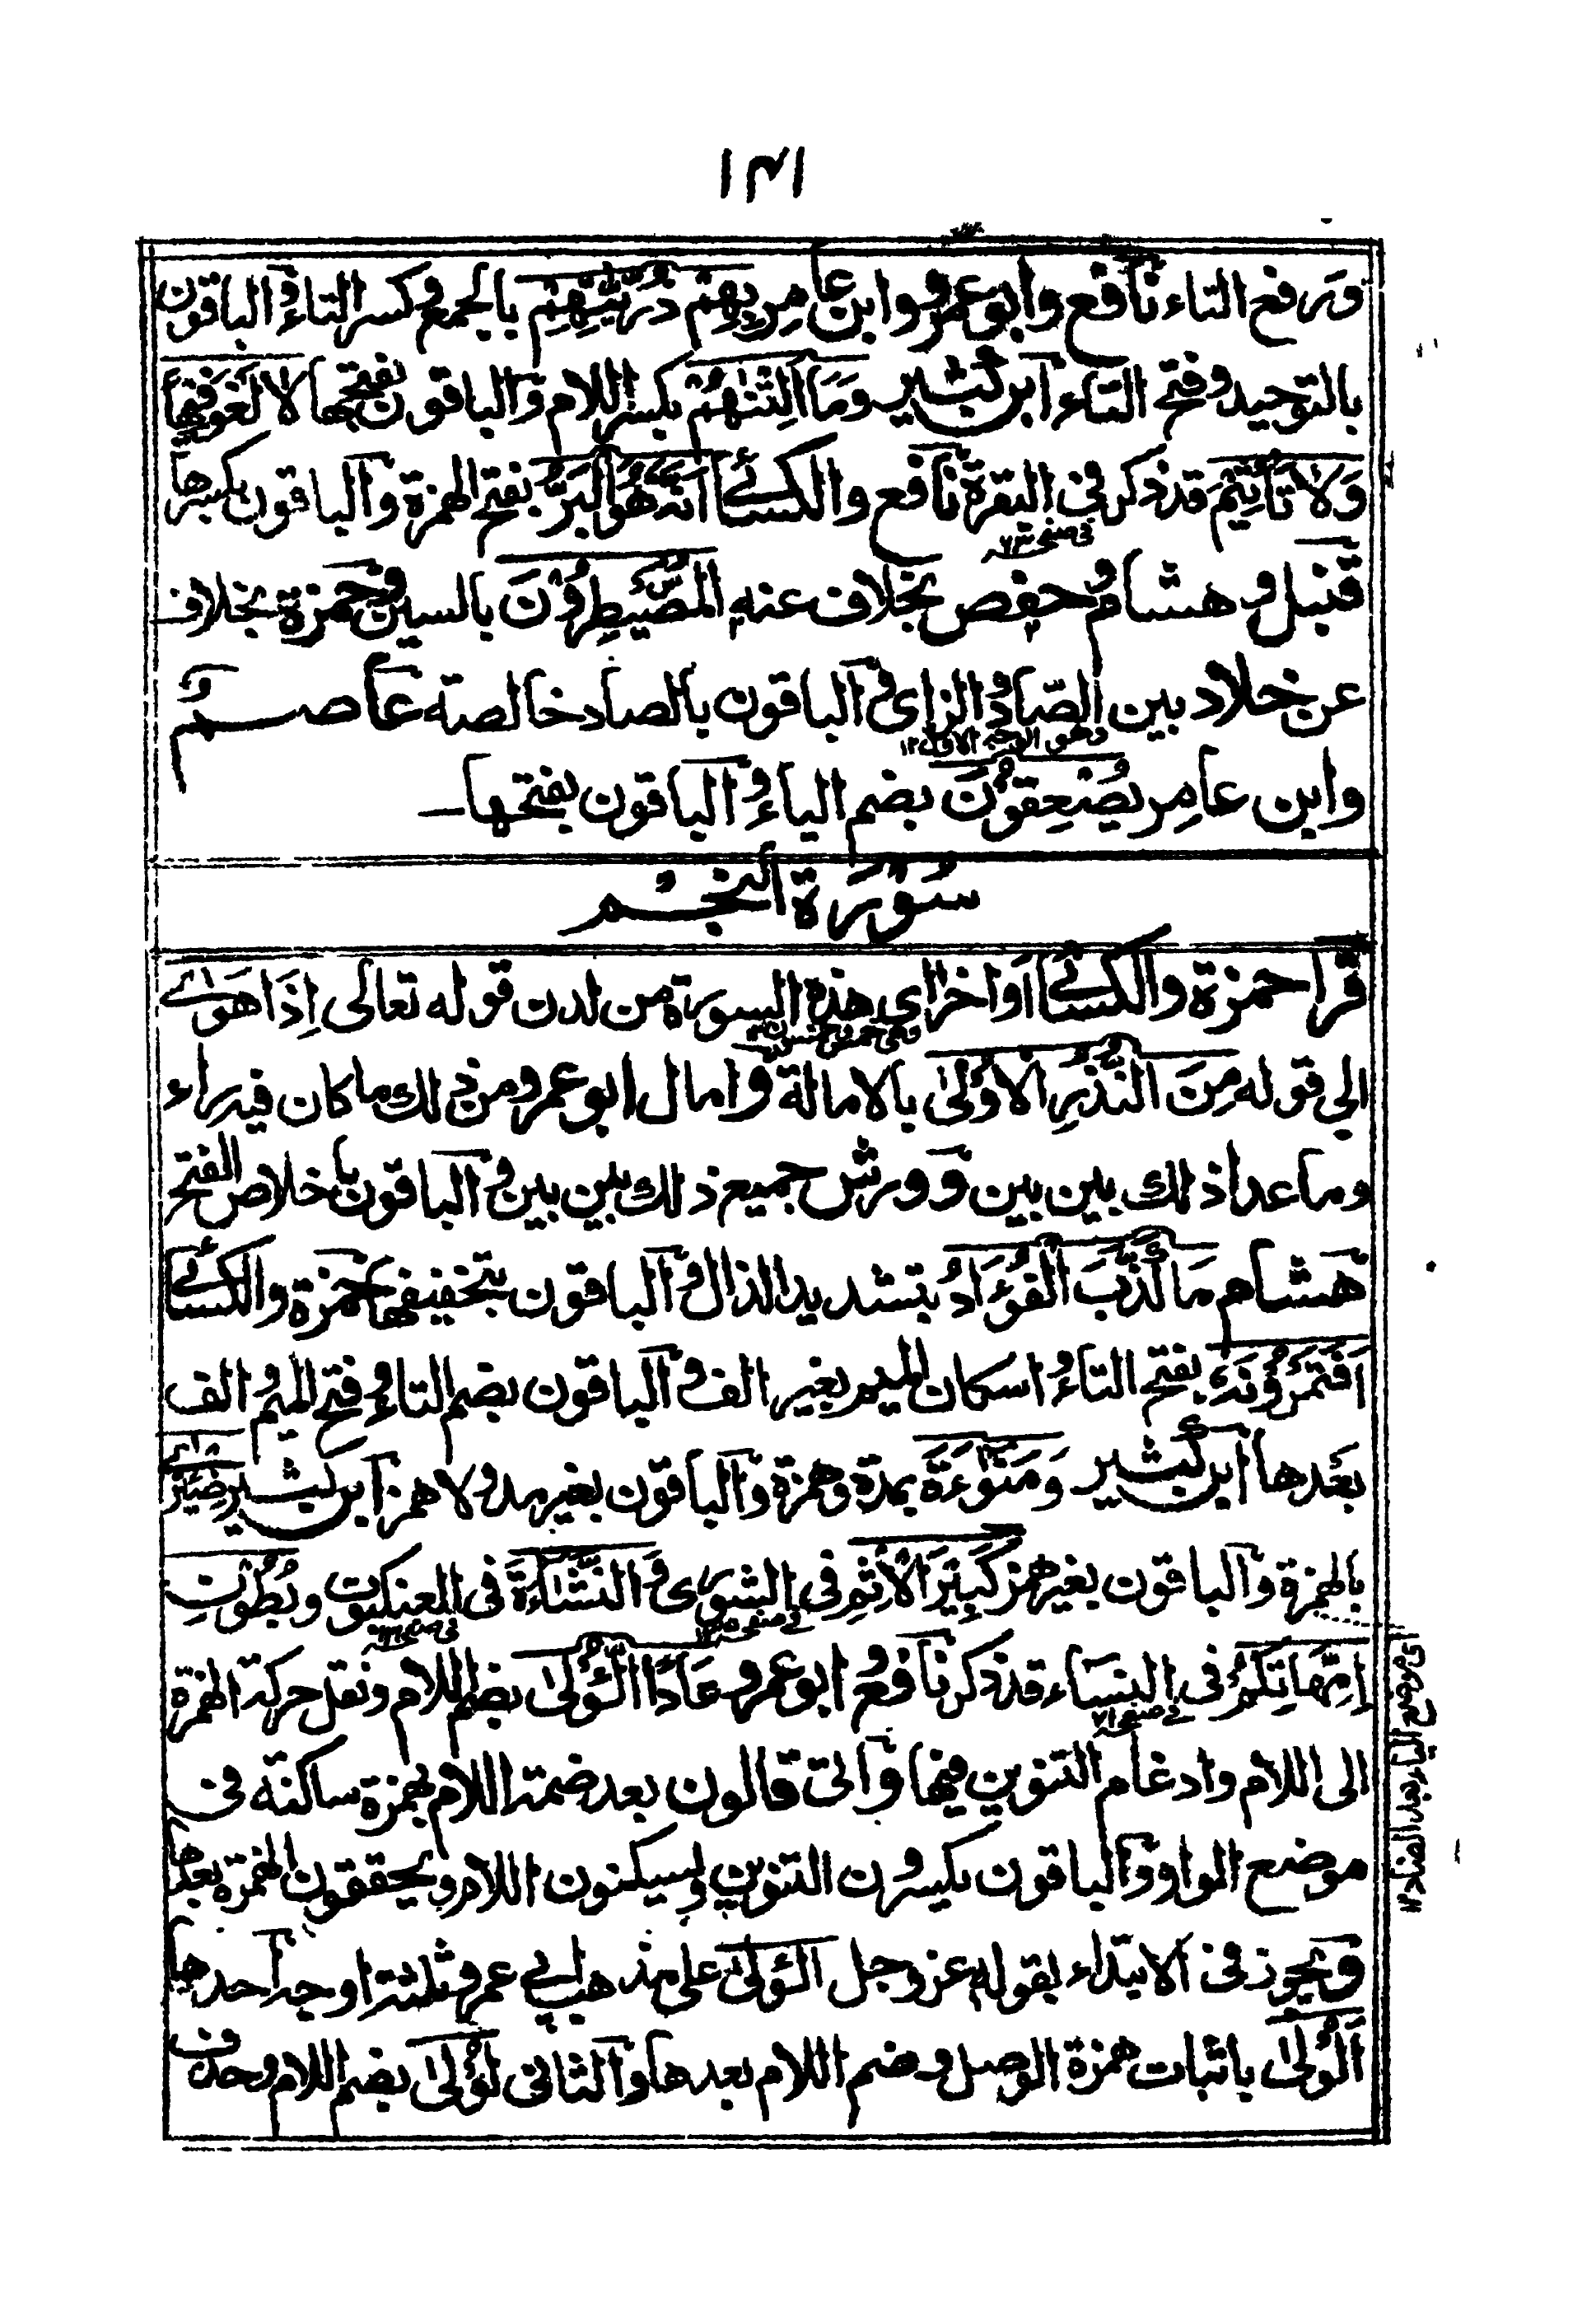 ١٣١
ورفع التاء نافع وابو عمرو وابن عامر بهم ذُرِّيّٰتِهِمْ بالجمع وكسر التاء والباقون
بالتوحيد وفتح التاء ابن كثير وَمَا اَلِتْنٰهُمْ بكسر اللام والباقون بفتحها لا لَغْوَ فِيْهَا
وَلا تَأْثِيْمَ قد ذكر فى البقرة نافع والكسائى اَنَّه هُوَ الْبَرُّ بفتح الهمزة والباقون بكسرها
فى صفحه ٧٣
قنبل وهشام وحفص بخلاف عنه الْمُصَيْطِرُوْنَ بالسين وحمزة بخلاف
عن خلاد بين الصاد والزاى والباقون بالصاد خالصة عاصم
وهو الوجه الاول ١٢
وابن عامر يُصْعَقُوْنَ بضم الياء والباقون بفتحها
سُوْرَة النجْم
قرأ حمزة والكسائى اواخر اى هذه السورة من لدن قوله تعالى اِذَا هَوٰى
الى قوله مِنَ النُّذُرِ الْاُوْلٰى بالامالة وامال ابو عمرو من ذلك ما كان فيه راء
وما عدا ذلك بين بين وورش جميع ذلك بين بين والباقون باخلاص الفتح
هشام مَا كَذَّبَ الْفُؤَادُ بتشديد الذال والباقون بتخفيفها حمزة والكسائى
اَفَتَمْرُوْنَهٗ بفتح التاء واسكان الميم بغير الف والباقون بضم التاء وفتح الميم والف
بعدها ابن كثير وَمَنٰوءَةَ بمدة وهمزة والباقون بغير مد ولا همز ابن كثير ضِئْزٰى
بالهمزة والباقون بغير همز كَبٰئِرَ الْاِثْمِ فى الشورى و النَّشْاَةَ فى العنكبوت و بُطُوْنِ
فى صفحه ١٢٥
اِمَّهَاتِكُمْ فى النساء قد ذكر نافع وابو عمرو عَادًا الُّوْلٰى بضم اللام ونقل حركة الهمزة
فى صفحه ٧١
الى اللام وادغام التنوين فيها واتى قالون بعد ضمة اللام بهمزة ساكنة فى
موضع الواو والباقون يكسرون التنوين ويسكنون اللام ويحققون الهمزة بعدها
ويجوز فى الابتداء بقوله عز وجل الُوْلٰى على مذهب ابى عمرو ثلثة اوجه احدها
اَلُوْلٰى باثبات همزة الوصل وضم اللام بعدها والثانى لُوْلٰى بضم اللام وحذف